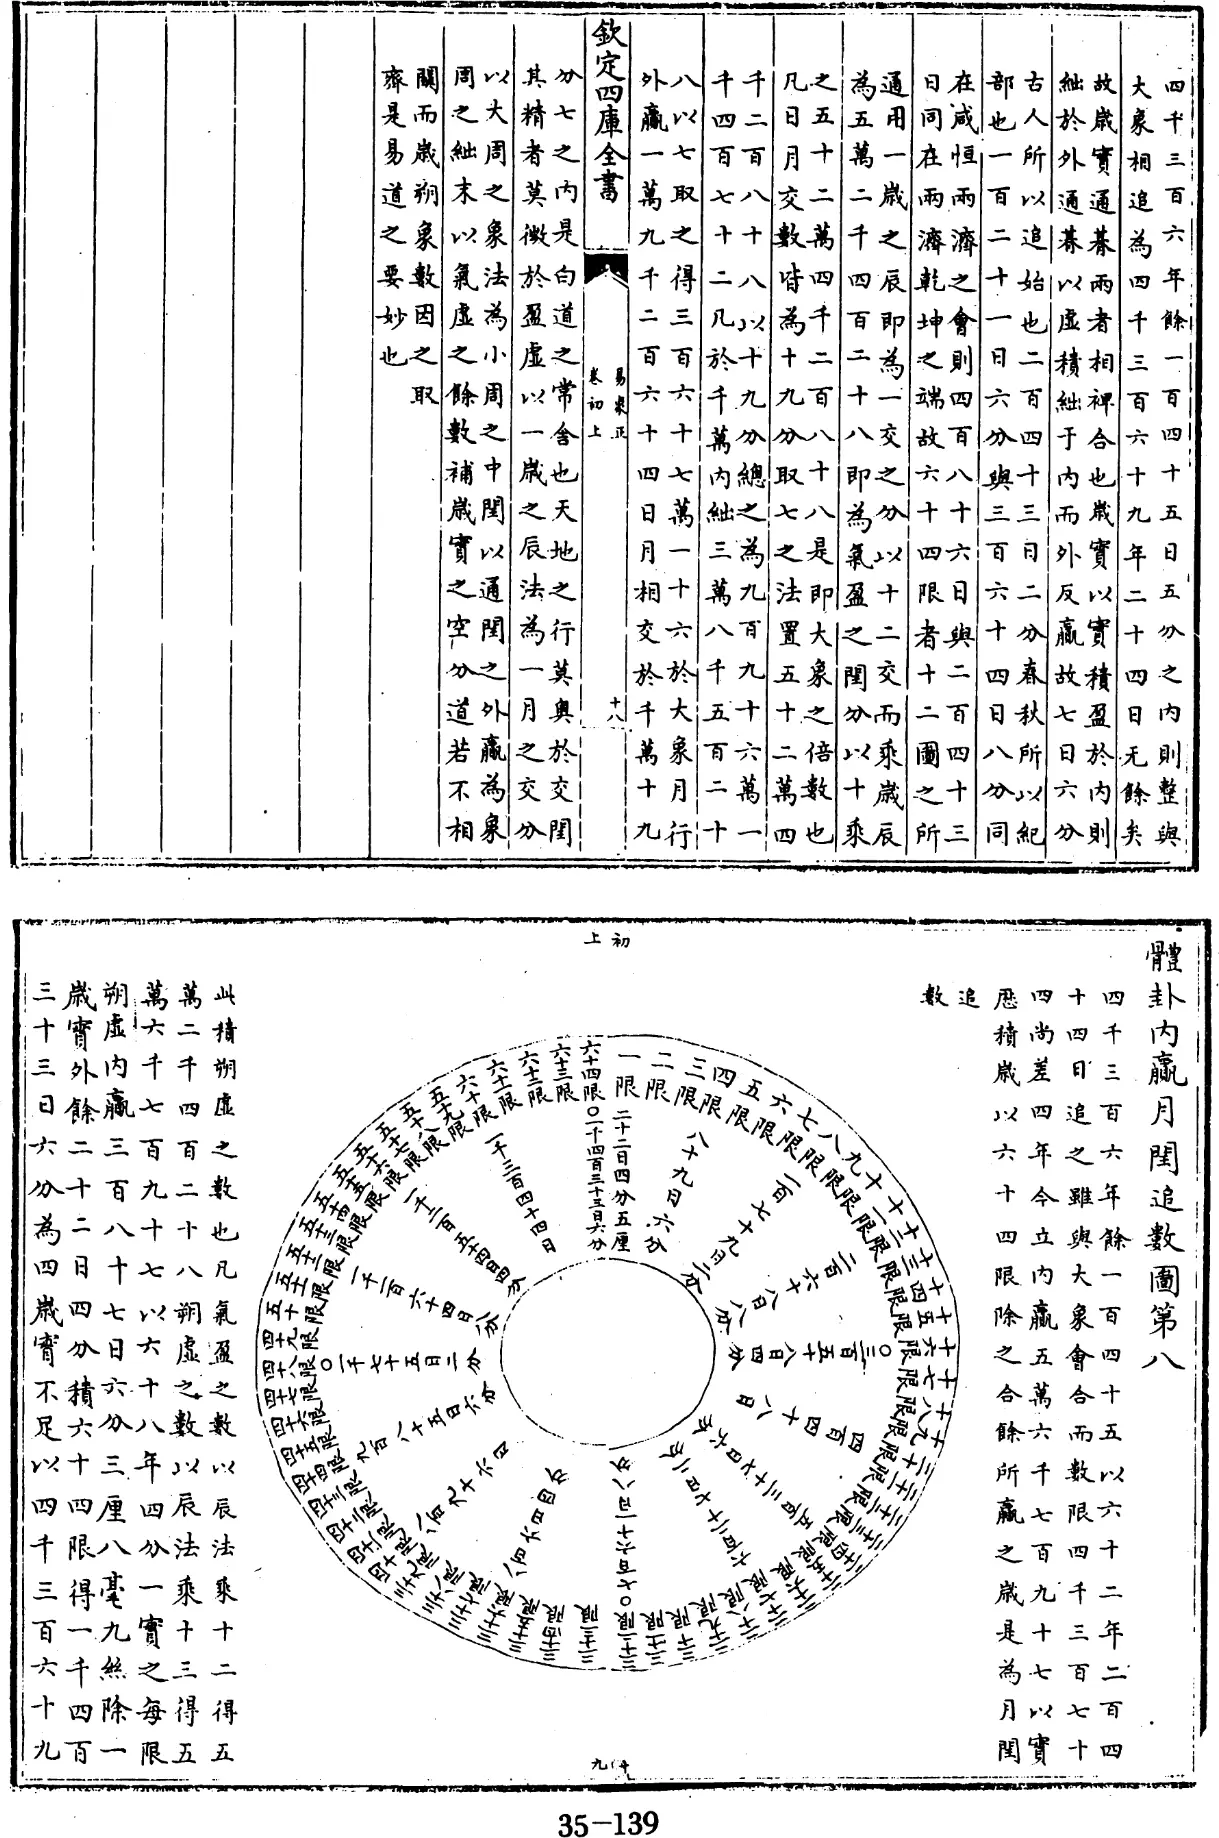 四千三百六年餘一百四十五日五分之内則整與
大象相追為四千三百六十九年二十四日无餘矣
故歲實通朞兩者相裨合也歲實以實積盈於内則
絀於外通朞以虚積絀于内而外反贏故七日六分
古人所以追始也二百四十三日二分春秋所以紀
部也一百二十一日六分與三百六十四日八分同
在咸恒兩濟之會則四百八十六日與二百四十三
日同在兩濟乾坤之端故六十四限者十二圖之所
通用一歲之辰即為一交之分以十二交而乘歲辰
為五萬二千四百二十八即為氣盈之閏分以十乘
之五十二萬四千二百八十八是即大象之倍數也
凡日月交數皆為十九分取七之法置五十二萬四
千二百八十八以十九分總之為九百九十六萬一
千四百七十二凡於千萬内絀三萬八千五百二十
八以七取之得三百六十七萬一十六於大象月行
外贏一萬九千二百六十四日月相交於千萬十九
欽定四庫全書
易象正
卷初上
十八
分七之内是白道之常舍也天地之行莫奥於交閏
其精者莫微於盈虚以一歲之辰法為一月之交分
以大周之象法為小周之中閏以通閏之外贏為象
周之絀末以氣虚之餘數補歲實之空分道若不相
關而歲朔象數因之取
齊是易道之要妙也
初上
體卦内贏月閏追數圖第八
四千三百六年餘一百四十五以六十二年二百四
十四日追之雖與大象會合而數限四千三百七十
四尚差四年今立内贏五萬六千七百九十七以實
歴積歲以六十四限除之合餘所贏之歲是為月閏
追
數
一限
二限
三限
四限
五限
六限
七限
八限
九限
十限
十一限
十二限
十三限
十四限
十五限
十六限
十七限
十八限
十九限
二十限
二十一限
二十二限
二十三限
二十四限
二十五限
二十六限
二十七限
二十八限
二十九限
三十限
三十一限
三十二限
三十三限
三十四限
三十五限
三十六限
三十七限
三十八限
三十九限
四十限
四十一限
四十二限
四十三限
四十四限
四十五限
四十六限
四十七限
四十八限
四十九限
五十限
五十一限
五十二限
五十三限
五十四限
五十五限
五十六限
五十七限
五十八限
五十九限
六十限
六十一限
六十二限
六十三限
六十四限〇一千四百三十三日六分
二十二日四分五厘
八十九日六分
一百七十九日二分
二百六十八日八分
〇三百五十八日四分
四百四十八日
五百三十七日六分
六百二十七日二分
〇七百一十六日八分
八百六日四分
八百九十六日
九百八十五日六分
〇一千七十五日二分
一千一百六十四日八分
一千二百五十四日四分
一千三百四十四日
此積朔虚之數也凡氣盈之數以辰法乘十二得五
萬二千四百二十八朔虚之數以辰法乘十三得五
萬六千七百九十七以六十八年四分一實之每限
朔虚内贏三百八十七日六分三厘八毫九絲除一
歲實外餘二十二日四分積六十四限得一千四百
三十三日六分為四歲實不足以四千三百六十九
十九
35-139